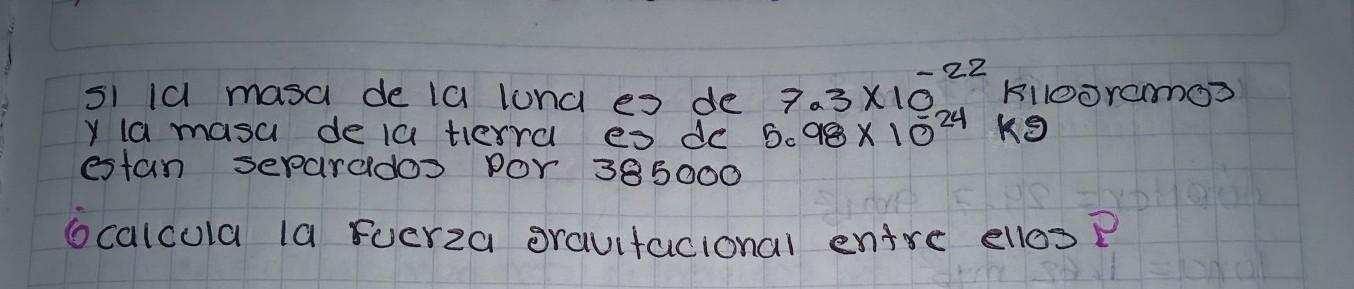 si la masa de la luna es de 7.3 x 10^-22 kilogramos
y la masa de la tierra es de 5.98 x 10^-24 kg
estan separados por 385000
¿calcula la fuerza gravitacional entre ellos?